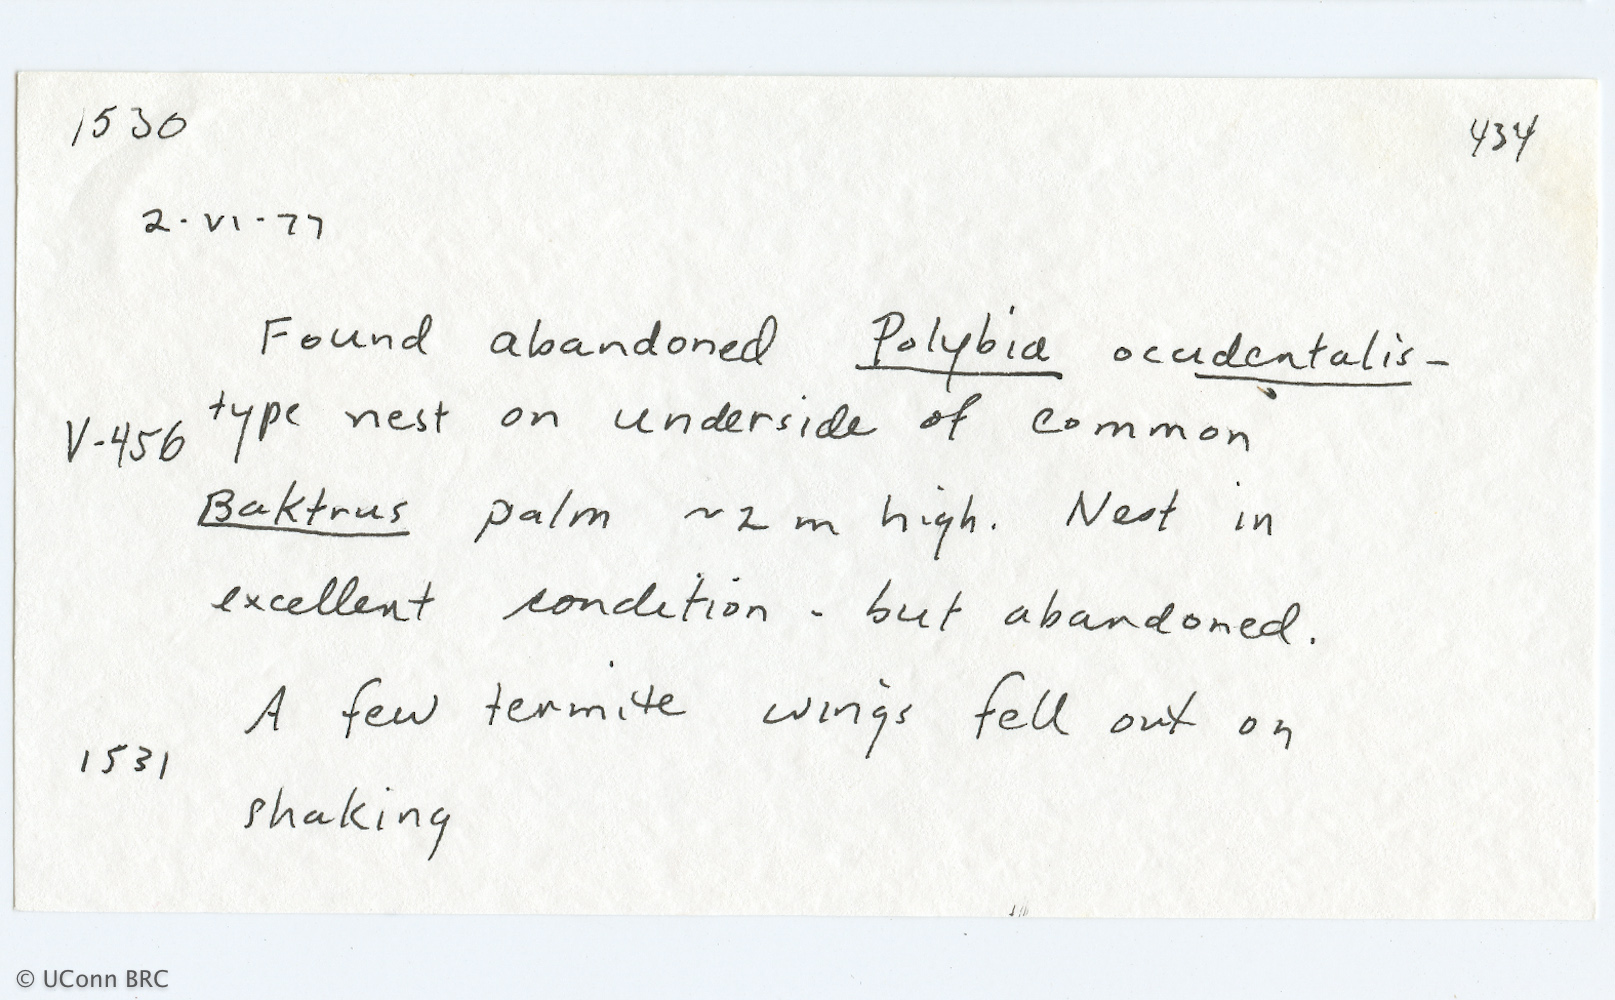 1530
434
2-VI-77
Found abandoned Polybia occidentalis-
V-456
type nest on underside of common
Baktrus palm ~2 m high. Nest in
excellent condition - but abandoned.
A few termite wings fell out on
1531
shaking
© UConn BRC